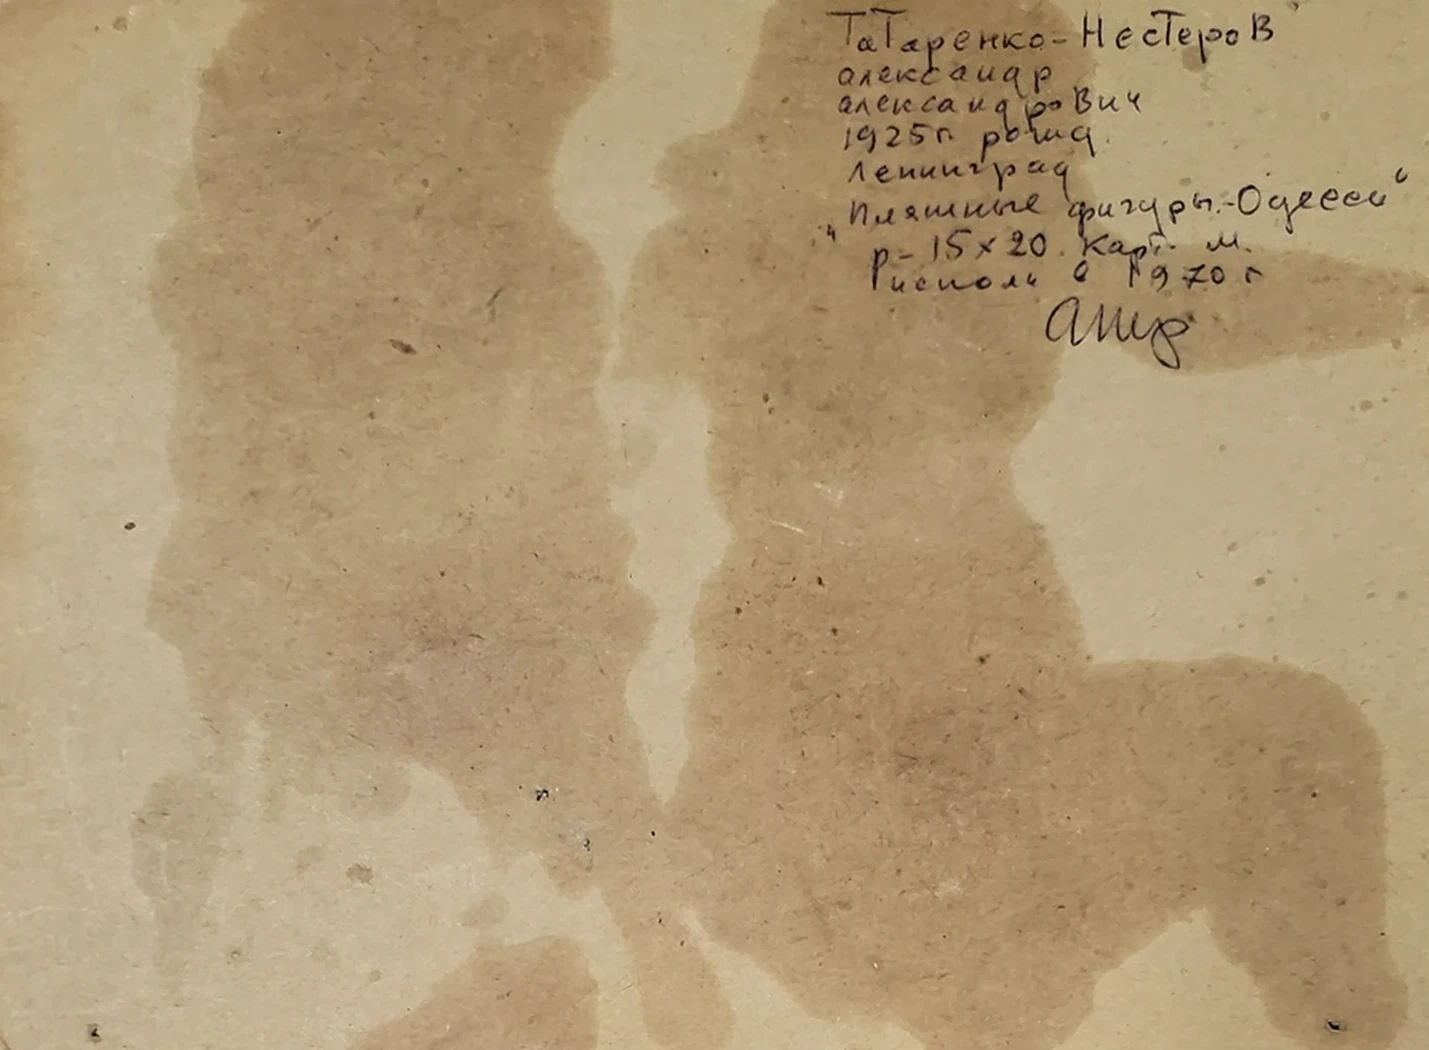 Татаренко-Нестеров
александр
александрович
1925г. рожд.
Ленинград
„Пляжные фигуры.-Одесса“
р-15х20. карт. м.
исполн в 1970 г